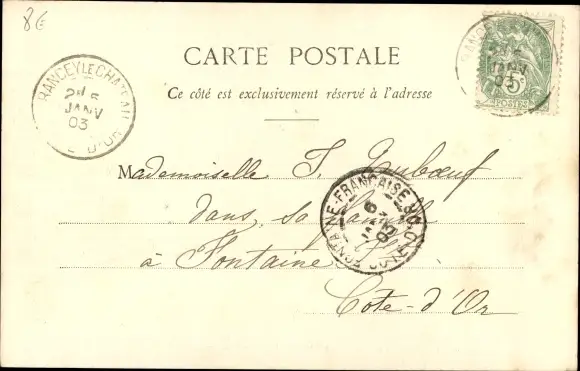 8€
CARTE POSTALE
Ce côté est exclusivement réservé à l'adresse
RANCEY LE CHATEAU
2E 5
JANV
03
5c
POSTES
Mademoiselle J.
dans sa famille
à Fontaine
Côte-d'Or
FONTAINE-FRANÇAISE
6
JANV
03